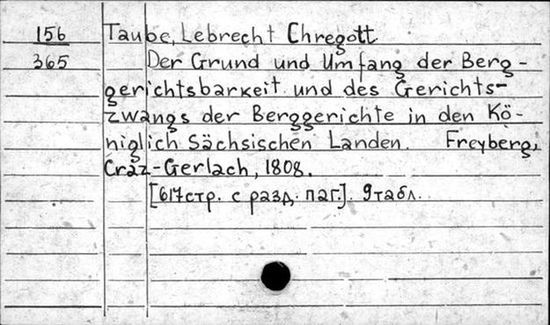 156 Taube, Lebrecht Chregott
365 Der Grund und Umfang der Berg-
gerichtsbarkeit und des Gerichts-
zwangs der Berggerichte in den Kö-
niglich Sächsischen Landen. Freyberg,
Craz-Gerlach, 1808.
[617стр. с разд. паг.]. 9табл.